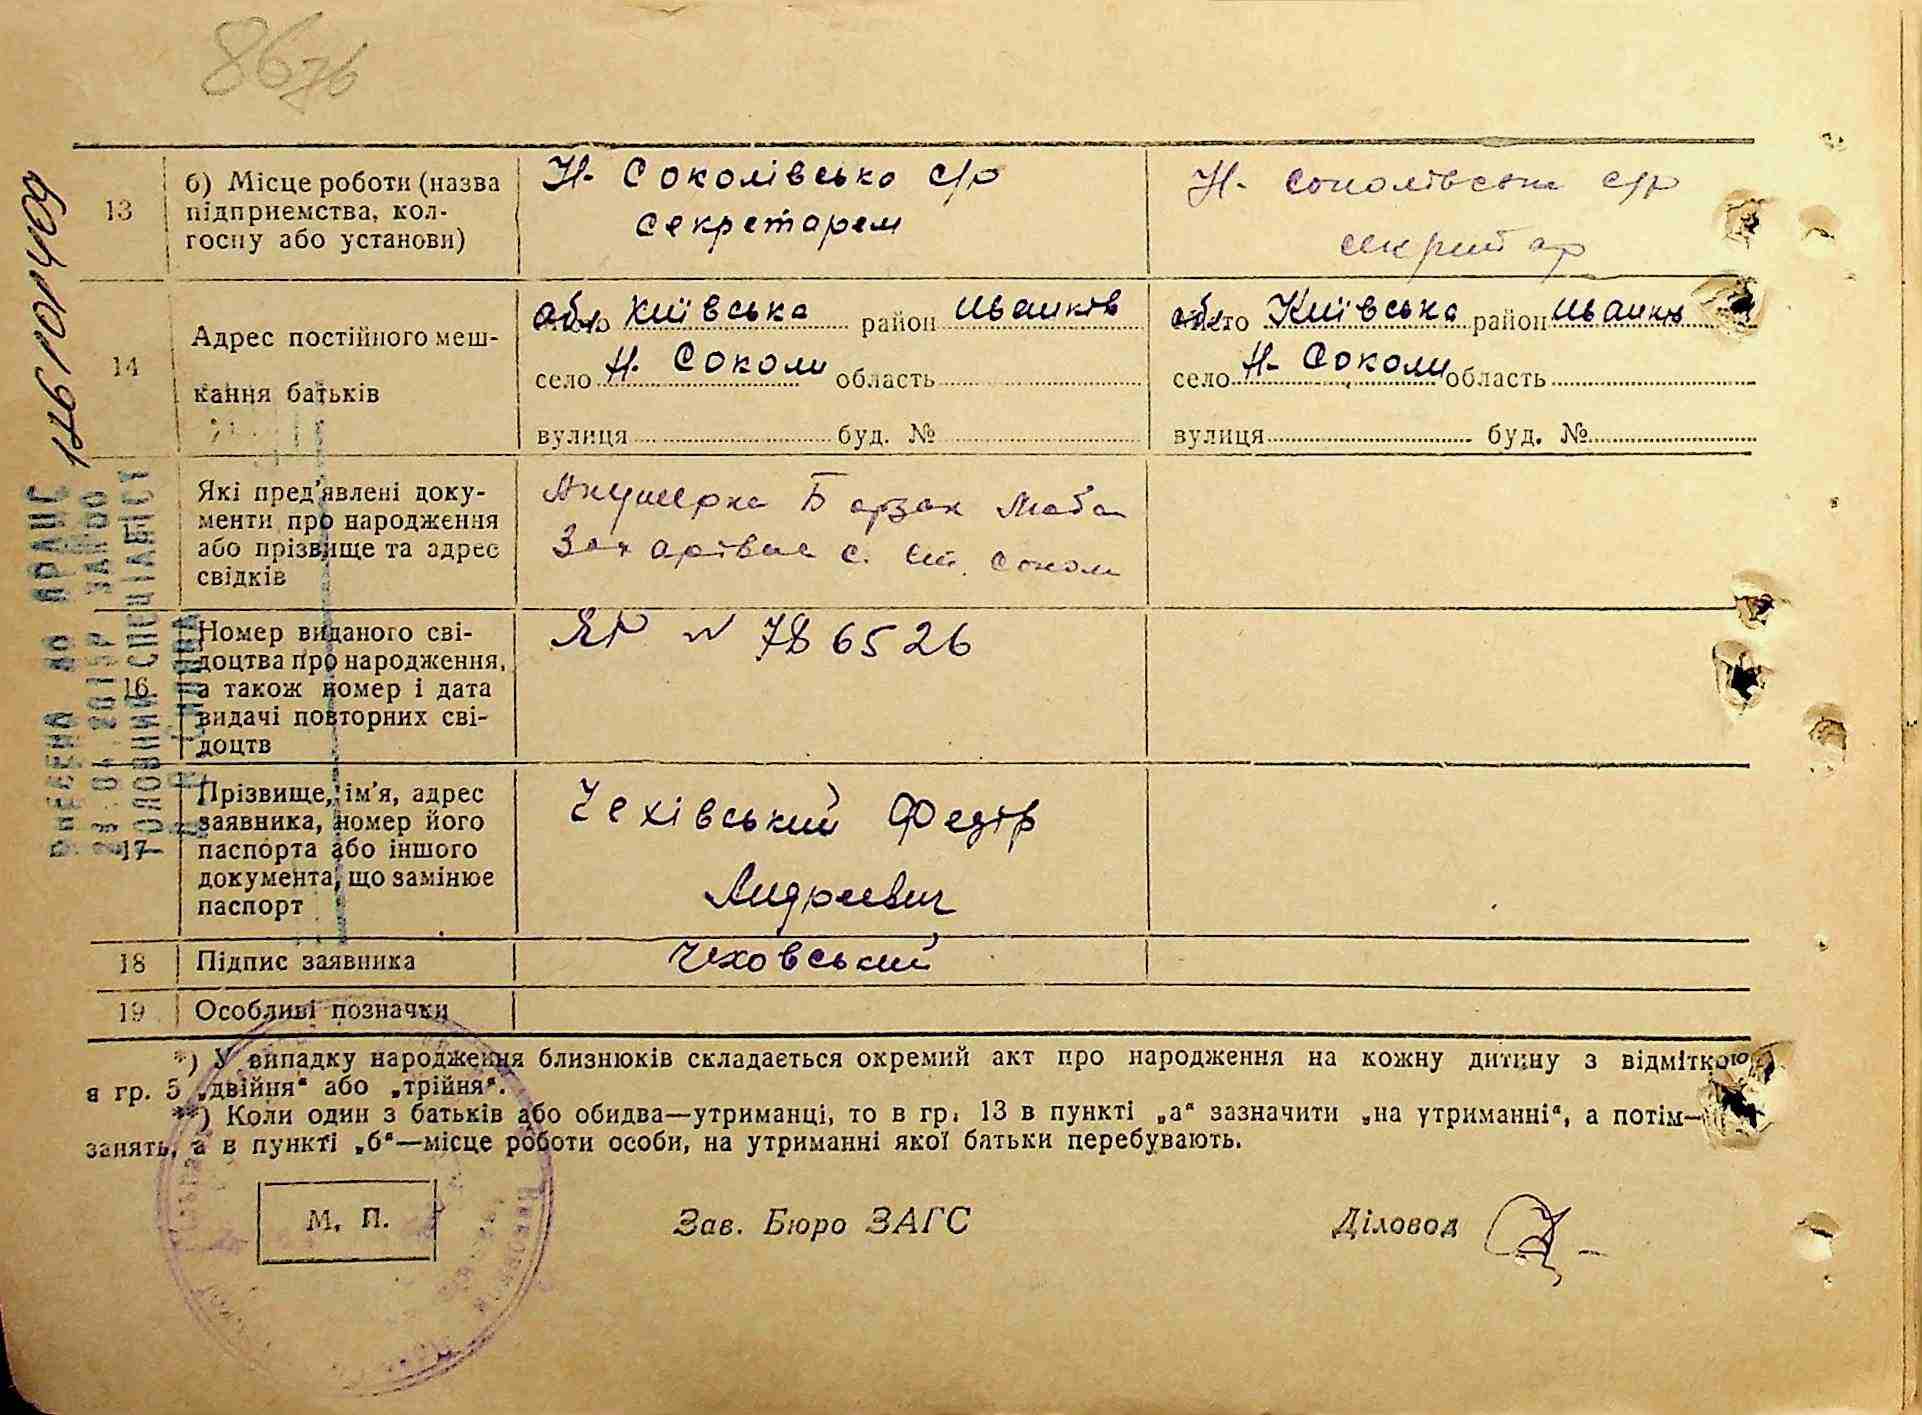 86зв
126101409
13
б) Місце роботи (назва
підприємства, кол-
госпу або установи)
Н. Соколівська с/р
секретарем
Н. Соколівська с/р
секритар
14
Адрес постійного меш-
кання батьків
обл. Київська район Иванків
село Н. Соколи область
вулиця буд. №
обл. Київська район Иванків
село Н. Соколи область
вулиця буд. №
Які пред'явлені доку-
менти про народження
або прізвище та адрес
свідків
Акушерка Барзак Люба
Захарівна с. Ст. Соколи
16
Номер виданого сві-
доцтва про народження,
а також номер і дата
видачі повторних сві-
доцтв
ЯР № 786526
17
Прізвище, ім'я, адрес
заявника, номер його
паспорта або іншого
документа, що замінює
паспорт
Чехівський Федір
Андреевич
18
Підпис заявника
Чеховський
19
Особливі позначки
ВНЕСЕНО ДО ДРАЦС
ГОЛОВНИЙ СПЕЦІАЛІСТ
*) У випадку народження близнюків складається окремий акт про народження на кожну дитину з відміткою
в гр. 5 „двійня“ або „трійня“.
**) Коли один з батьків або обидва—утриманці, то в гр. 13 в пункті „а“ зазначити „на утриманні“, а потім—
занять, а в пункті „б“—місце роботи особи, на утриманні якої батьки перебувають.
М. П.
Зав. Бюро ЗАГС
Діловод